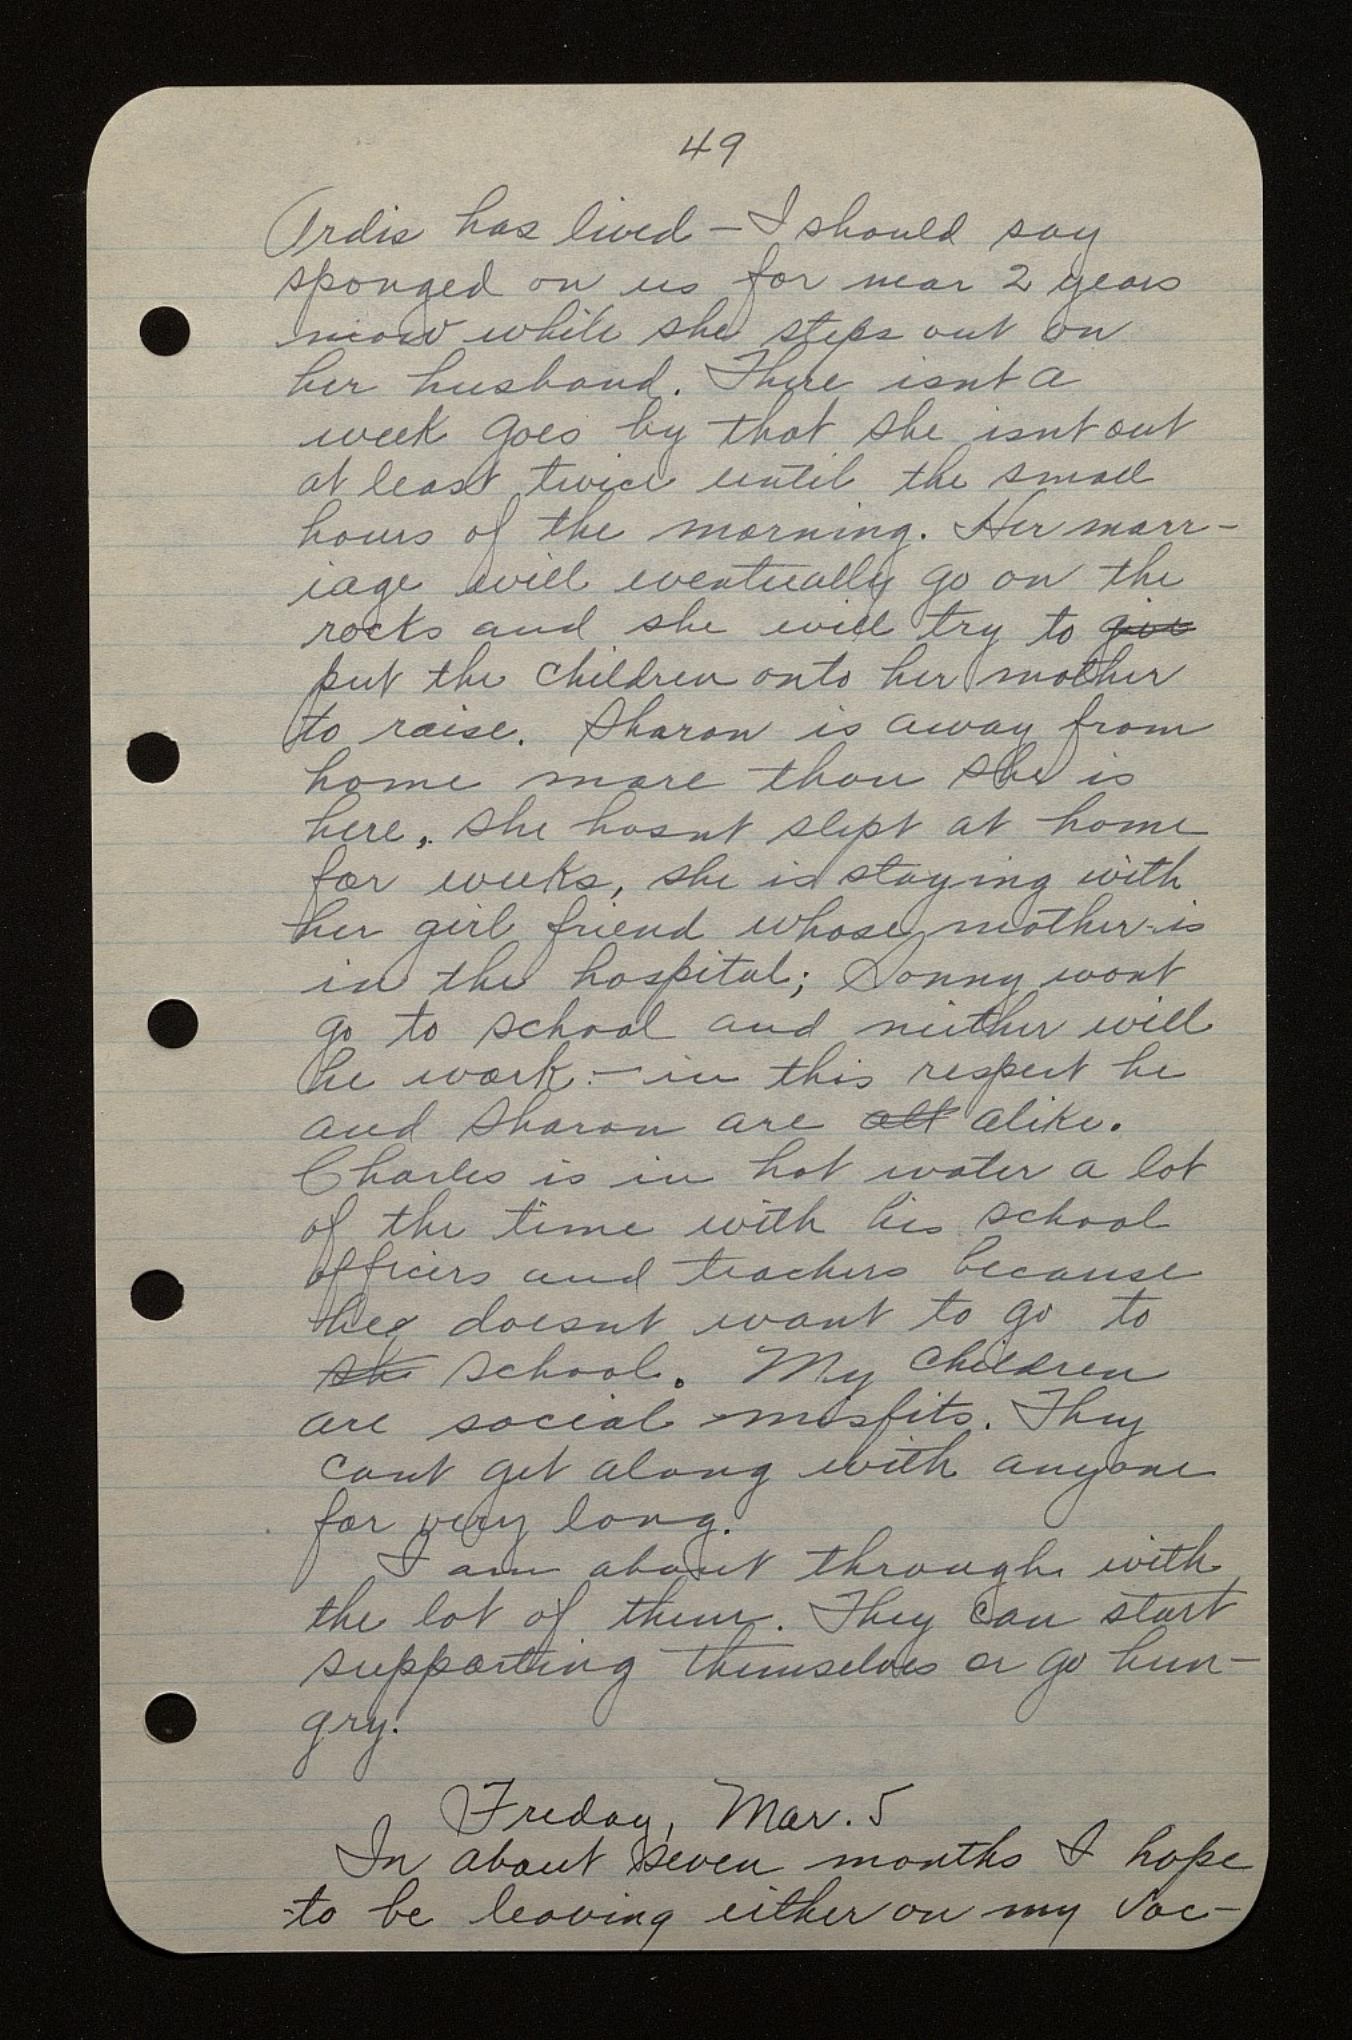 49
Ardis has lived – I should say
sponged on us for near 2 years
now while she steps out on
her husband. There isnt a
week goes by that she isnt out
at least twice until the small
hours of the morning. Her marr-
iage will eventually go on the
rocks and she will try to give
put the children onto her mother
to raise. Sharon is away from
home more than she is
here, she hasnt slept at home
for weeks, she is staying with
her girl friend whose mother is
in the hospital; Sonny wont
go to school and neither will
he work – in this respect he
and Sharon are all alike.
Charles is in hot water a lot
of the time with his school
officers and teachers because
he doesnt want to go to
school. My children
are social misfits. They
cant get along with anyone
for very long.
I am about through with
the lot of them. They can start
supporting themselves or go hun-
gry.
Friday, Mar. 5
In about seven months I hope
to be leaving either on my vac-